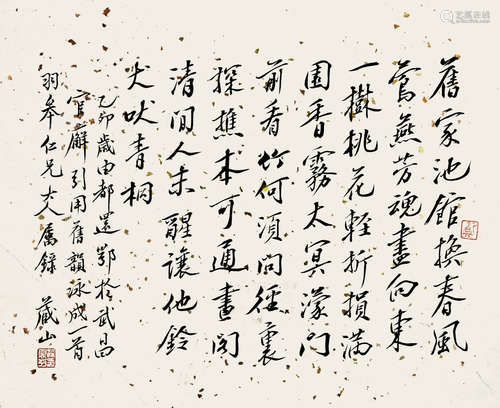 舊家池館換春風
鶯燕芳魂盡向東
一樹桃花輕折損滿
園香霧太冥濛門
前看竹何須問徑裏
探樵本可通畫閣
清閒人未醒讓他鈴
犬吠青桐
乙卯歲由都還鄂於武昌
官廨引用舊韻詠成一首
羽皋仁兄大人屬錄 藏山